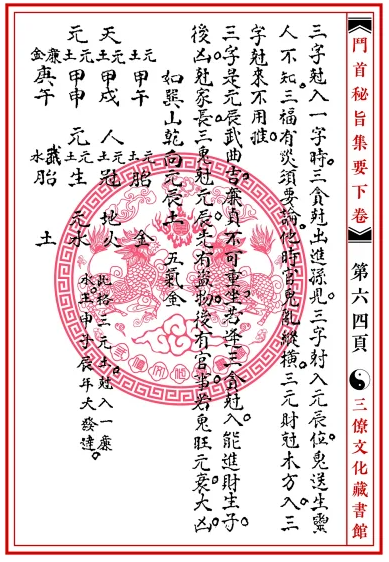 鬥首秘旨集要下卷 第六四頁 三僚文化藏書館
三字尅入一字時。三貪尅出進孫児。三字尅入元辰位。鬼送生靈
人不知。三福有災須要論。他時官鬼亂縱橫。三元財尅木方入。三
字尅來不用推。
三字是元辰武曲吉。廉貞不可重坐。若逢三貪尅入。能進財生子。
後凶尅家長。三鬼尅元辰。先有盜物。後有官事。若鬼旺元衰。大凶
如巽山乾向元辰土 五氣金
元土 甲午 元土 胎 金
天 元土 甲戌 人 元土 冠 地 火
元 元土 甲申 元 元土 生 元 水
廉金 庚午 武水 胎 土
此格三元土尅入一廉
水。王申子辰年大發達。